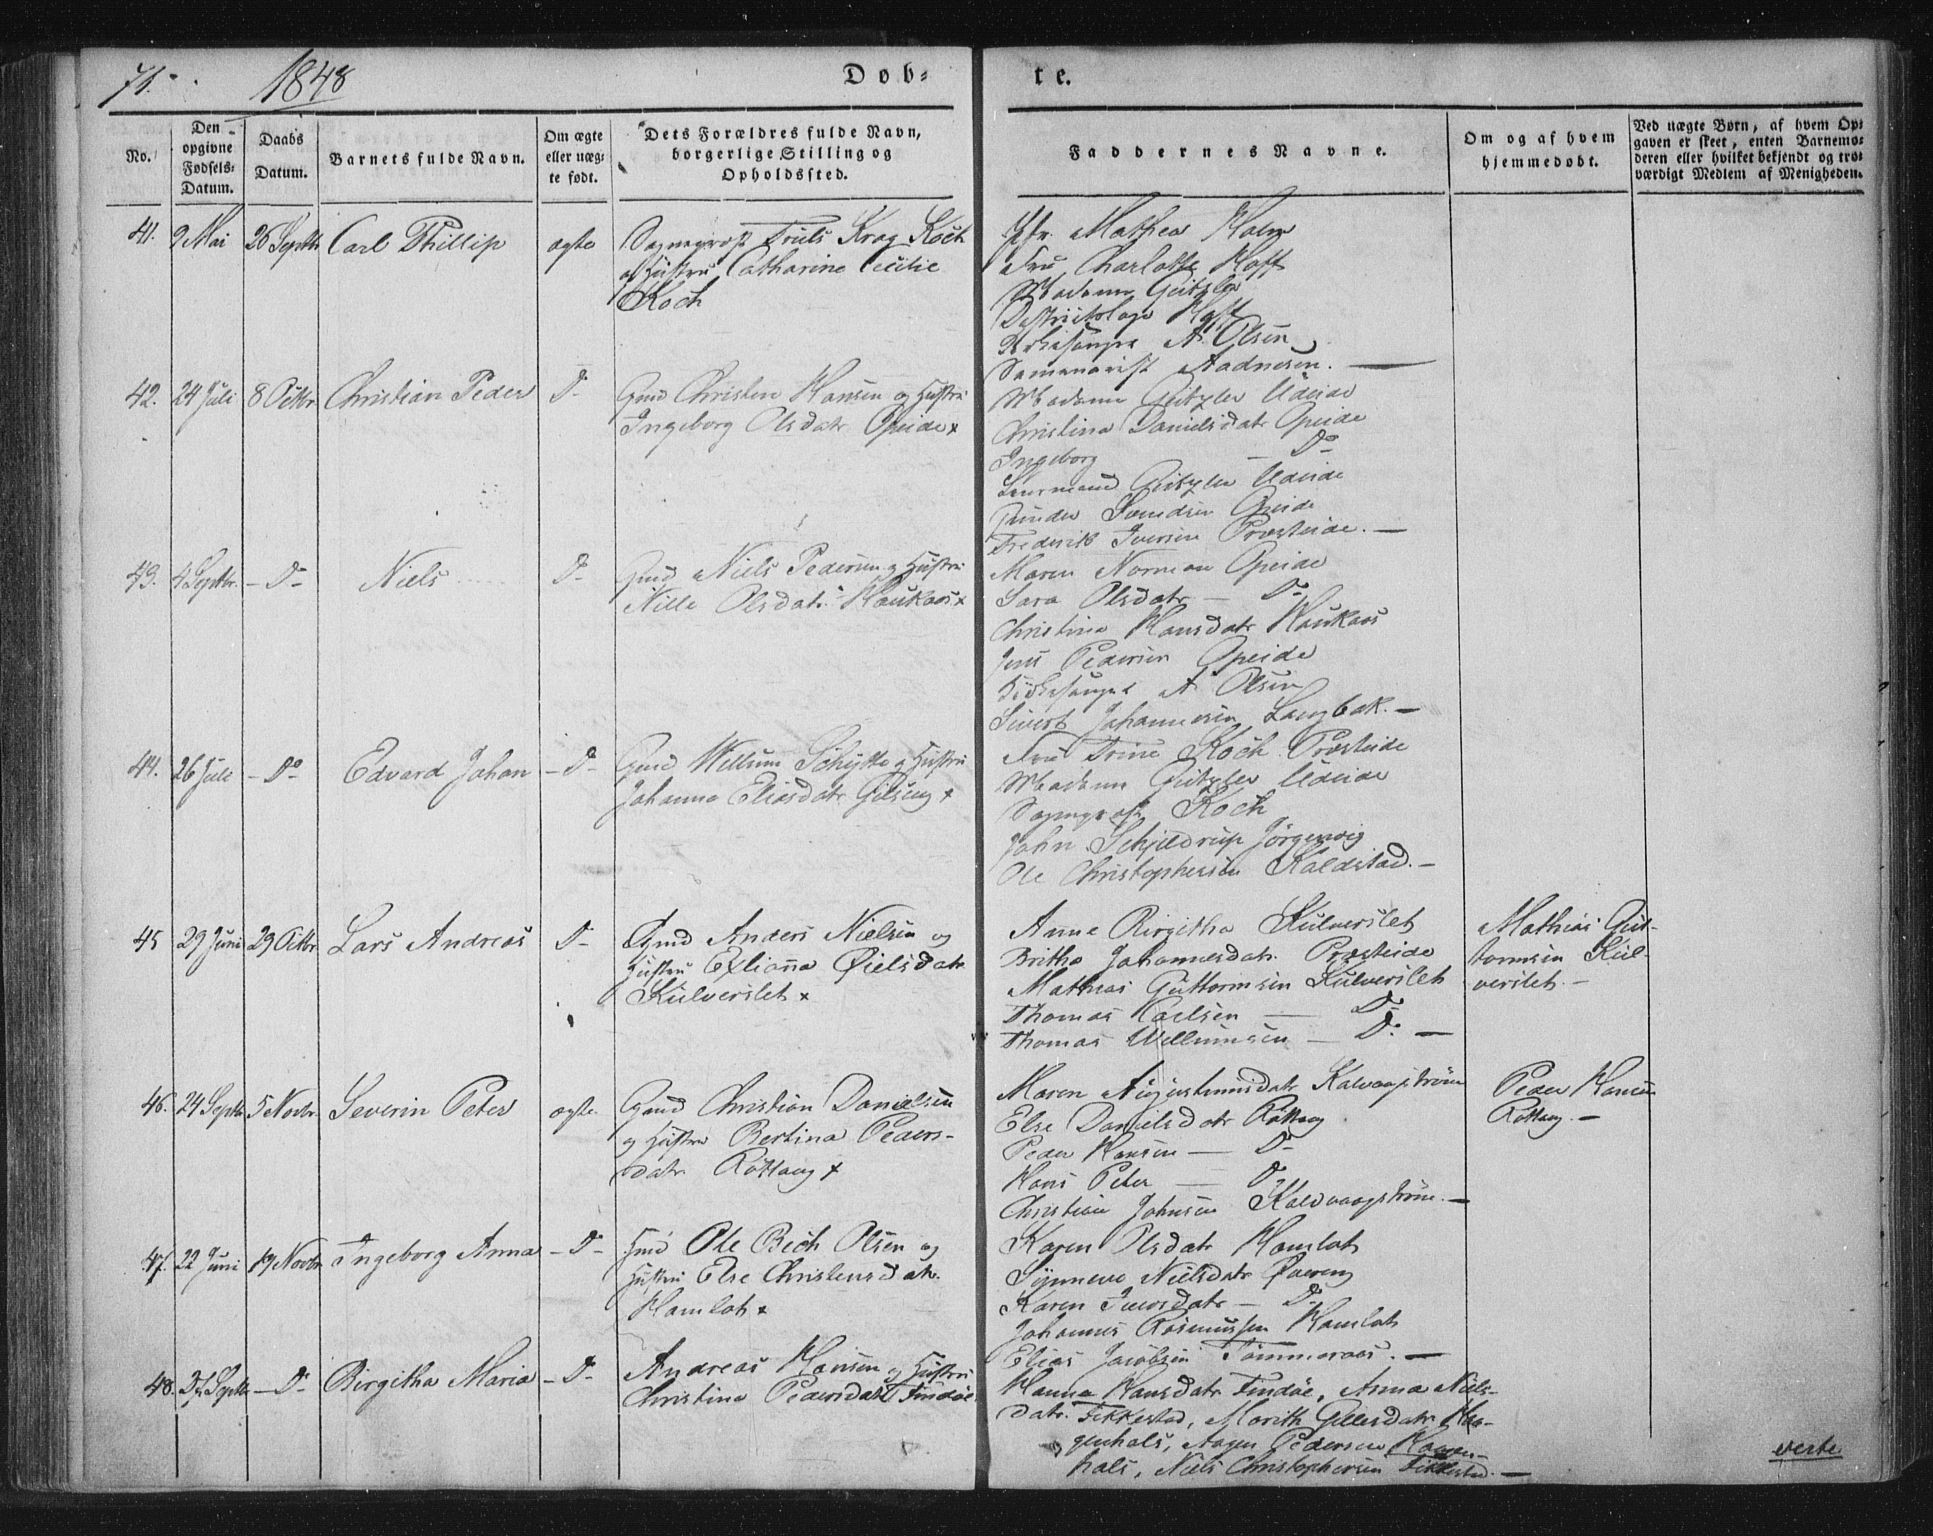 71. 1848 Døb- te.
No.
Den opgivne Fødsels-Datum.
Daabs Datum.
Barnets fulde Navn.
Om ægte eller uægte født.
Dets Forældres fulde Navn, borgerlige Stilling og Opholdssted.
Faddernes Navne.
Om og af hvem hjemmedøbt.
Ved uægte Børn, af hvem Opgaven er skeet, enten Barnemoderen eller hvilket bekjendt og troværdigt Medlem af Menigheden.
41. 9 Mai 26 Septbr Carl Phillip ægte Sogneprest Truls Krag Koch
og Hustru Catharine Cecilie
Koch
Jfr. Mathea Holm
Fru Charlotte Hoff
Madame
Districtslæge Hoff
Kirkesanger A. Olsen
Seminarist Aadnesen. —
42. 24 Juli 8 Octbr Christian Peder Do Gmd Christen Hansen og Hustru
Ingeborg Olsdatr Opeide x
Madame Uleide
Christina Danielsdatr Opeide
Ingeborg — Do
Gunder Svendsen Opeide
Frederik Iversen Præsteide. —
43. 4 Septbr — Do Niels Do Gmd Niels Pedersen og Hustru
Nille Olsdatr Haukaas x
Maren Norman Opeide
Sara Olsdatr — Do
Christina Hansdatr Haukaas
Jens Pedersen Opeide
Kirkesanger A. Olsen
Sivert Johannesen Langbak. —
44. 26 Juli — Do Edvard Johan — Do Gmd Wellum Schytte og Hustru
Johanna Eliasdatr x
Fru Trine Koch Præsteide
Madame
Sogneprest Koch
John Schjeldrup Jörgenvig
Ole Christophersen Kaldstad. —
45 29 Juni 29 Octbr Lars Andreas Do Gmd Anders Nielsen og
Hustru Øielsdatr
Kulverslet x
Anna Birgitha Kulverslet
Britha Johannesdatr. Præsteide
Mathias Guttormsen Kulverslet
Thomas Carlsen — Do
Thomas Wellumsen — Do —
Mathias Gut-
tormsen Kul-
verslet. —
46. 24 Septbr 5 Novbr Severin Peter ægte Gmd Christian Danielsen
og Hustru Bertina Peders-
datr Röttang x
Maren Augustinusdatr Kalvaagström
Else Danielsdatr Röttang
Peder Hansen — Do
Hans Peter — Do
Christian Johnsen Kalvaagström. —
Peder Hansen
Röttang. —
47. 22 Juni 19 Novbr Ingeborg Anna — Do Ole Bech Olsen og
Hustru Else Christensdatr.
Hamlot x
Karen Olsdatr Hamlot
Synneve Nielsdatr
Karen Iversdatr — Do
Johannes Rasmussen Hamlot
Elias Jacobsen Tömmeraas. —
48. 27 Septbr — Do Birgitha Maria — Do Andreas Hansen og Hustru
Christina Pedersdatr Tindöe
Hanna Hansdatr Tindöe, Anna Niels-
datr. Fikkestad, Marith Gellesdatr Haa-
genhals, Aagen Pedersen Haagen-
hals, Niels Christophersen Fikkestad. —
verte